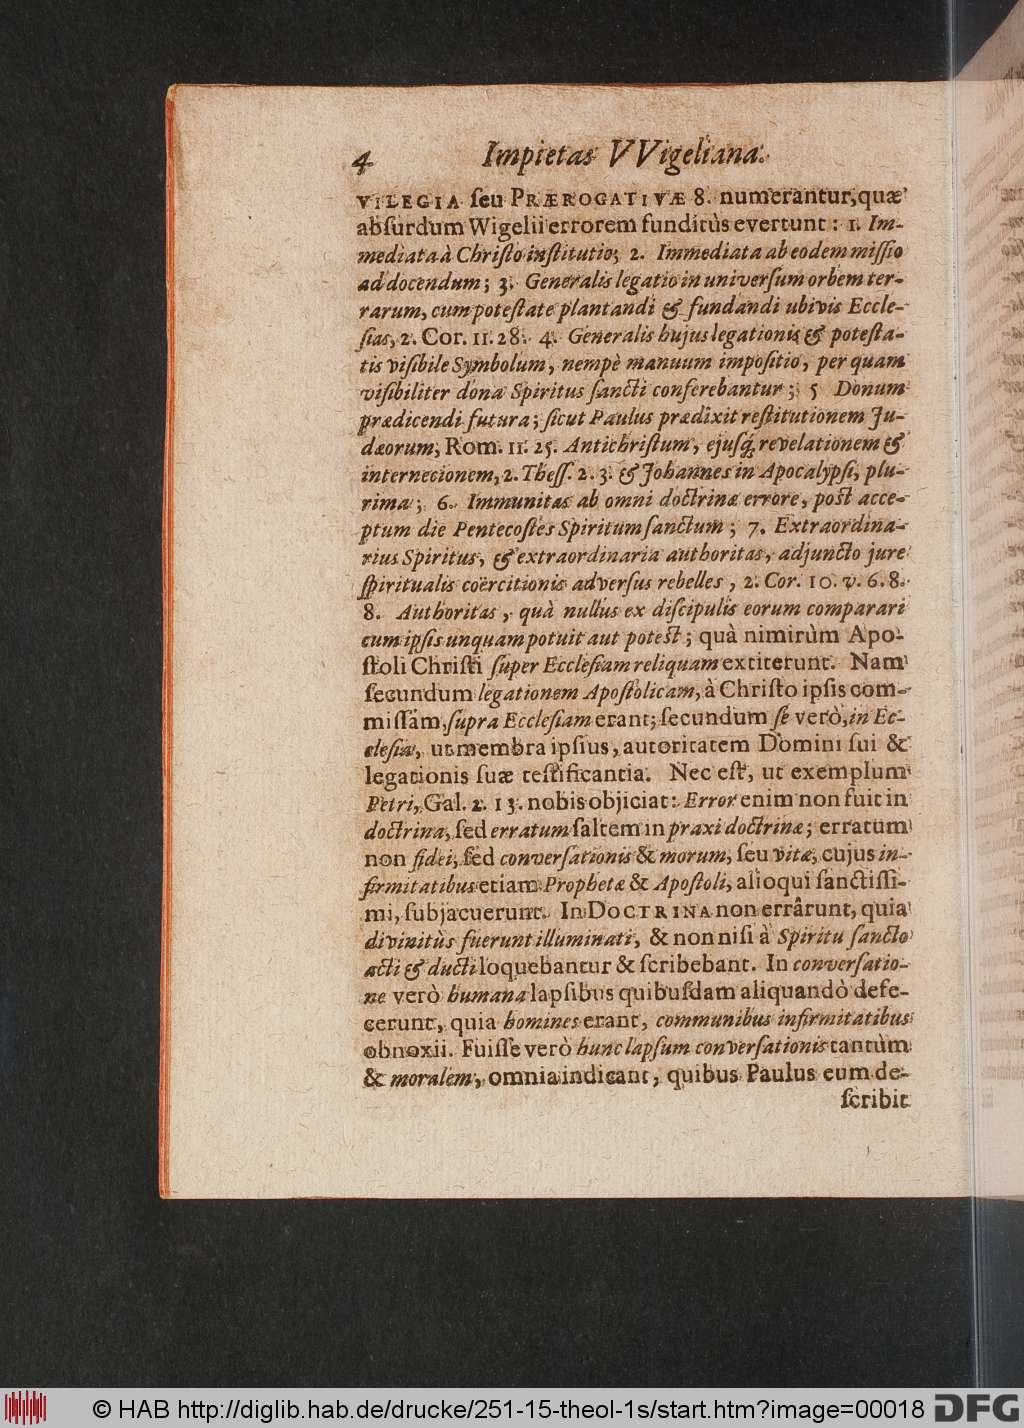 4 Impietas VVigeliana.
VILEGIA ſeu PRÆROGATIVÆ 8. numerantur, quæ
abſurdum Wigelii errorem funditùs evertunt: 1. Im-
mediata à Chriſto inſtitutio; 2. Immediata ab eodem miſſio
ad docendum; 3. Generalis legatio in univerſum orbem ter-
rarum, cum poteſtate plantandi & fundandi ubivis Eccle-
ſias, 2. Cor. 11. 28. 4. Generalis hujus legationis & poteſta-
tis viſibile Symbolum, nempè manuum impoſitio, per quam
viſibiliter dona Spiritus ſancti conferebantur; 5 Donum
prædicendi futura; ſicut Paulus prædixit reſtitutionem Ju-
dæorum, Rom. 11. 25. Antichriſtum, ejuſq; revelationem &
internecionem, 2. Theſſ. 2. 3. & Johannes in Apocalypſi, plu-
rima; 6. Immunitas ab omni doctrinæ errore, poſt acce-
ptum die Pentecoſtes Spiritum ſanctum; 7. Extraordina-
rius Spiritus, & extraordinaria authoritas, adjuncto jure
ſpiritualis coërcitionis adverſus rebelles, 2. Cor. 10. v. 6. 8.
8. Authoritas, quà nullus ex diſcipulis eorum comparari
cum ipſis unquam potuit aut poteſt; quà nimirùm Apo-
ſtoli Chriſti ſuper Eccleſiam reliquam extiterunt. Nam
ſecundum legationem Apoſtolicam, à Chriſto ipſis com-
miſſam, ſupra Eccleſiam erant; ſecundum ſe verò, in Ec-
cleſia, ut membra ipſius, autoritatem Domini ſui &
legationis ſuæ teſtificantia. Nec eſt, ut exemplum
Petri, Gal. 2. 13. nobis objiciat: Error enim non fuit in
doctrina, ſed erratum ſaltem in praxi doctrinæ; erratum
non fidei, ſed converſationis & morum, ſeu vitæ, cujus in-
firmitatibus etiam Prophetæ & Apoſtoli, alioqui ſanctiſſi-
mi, ſubjacuerunt. In DOCTRINA non errârunt, quia
divinitùs fuerunt illuminati, & non niſi à Spiritu ſancto
acti & ducti loquebantur & ſcribebant. In converſatio-
ne verò humana lapſibus quibuſdam aliquandò defe-
cerunt, quia homines erant, communibus infirmitatibus
obnoxii. Fuiſſe verò hunc lapſum converſationis tantùm
& moralem, omnia indicant, quibus Paulus eum de-
ſcribit
© HAB http://diglib.hab.de/drucke/251-15-theol-1s/start.htm?image=00018
DFG